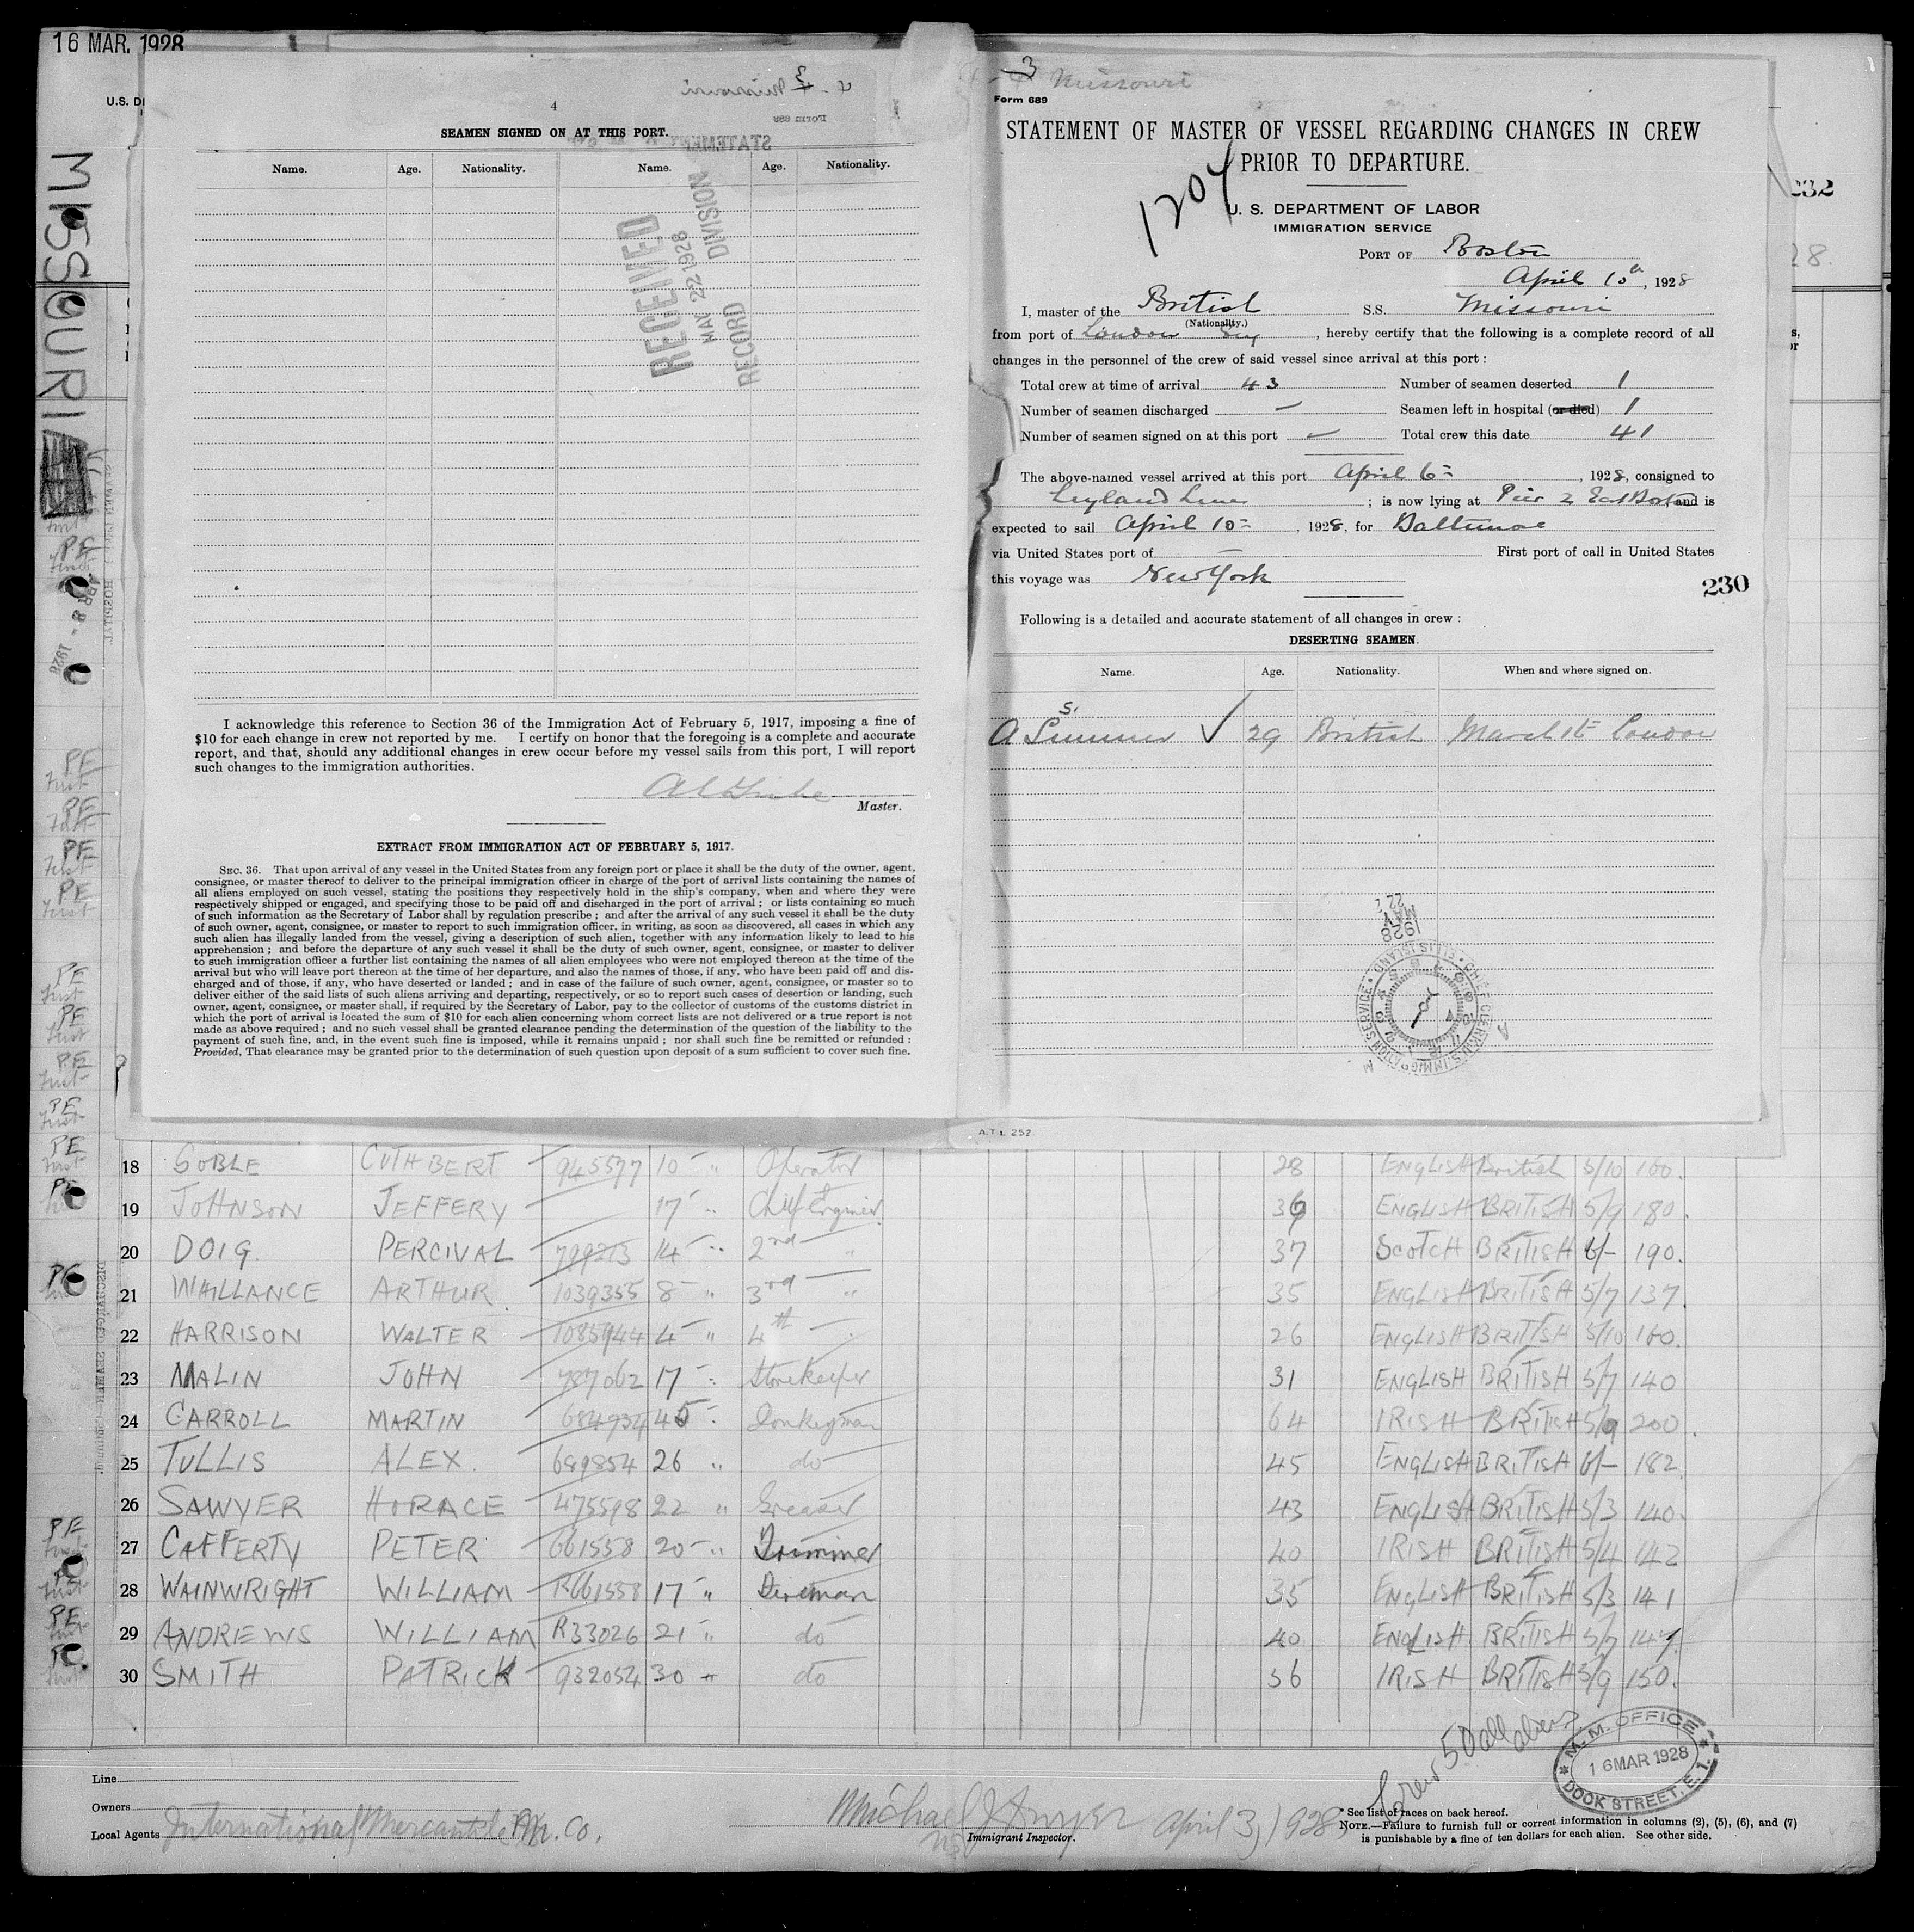 16 MAR. 1928
MISSOURI
U.S. DI
4
SEAMEN SIGNED ON AT THIS PORT.
Name. Age. Nationality. Name. Age. Nationality.
RECEIVED
MAY 22 1928
RECORD DIVISION
I acknowledge this reference to Section 36 of the Immigration Act of February 5, 1917, imposing a fine of
$10 for each change in crew not reported by me. I certify on honor that the foregoing is a complete and accurate
report, and that, should any additional changes in crew occur before my vessel sails from this port, I will report
such changes to the immigration authorities.
Master.
EXTRACT FROM IMMIGRATION ACT OF FEBRUARY 5, 1917.
SEC. 36. That upon arrival of any vessel in the United States from any foreign port or place it shall be the duty of the owner, agent,
consignee, or master thereof to deliver to the principal immigration officer in charge of the port of arrival lists containing the names of
all aliens employed on such vessel, stating the positions they respectively hold in the ship's company, when and where they were
respectively shipped or engaged, and specifying those to be paid off and discharged in the port of arrival; or lists containing so much
of such information as the Secretary of Labor shall by regulation prescribe; and after the arrival of any such vessel it shall be the duty
of such owner, agent, consignee, or master to report to such immigration officer, in writing, as soon as discovered, all cases in which any
such alien has illegally landed from the vessel, giving a description of such alien, together with any information likely to lead to his
apprehension; and before the departure of any such vessel it shall be the duty of such owner, agent, consignee, or master to deliver
to such immigration officer a further list containing the names of all alien employees who were not employed thereon at the time of the
arrival but who will leave port thereon at the time of her departure, and also the names of those, if any, who have been paid off and dis-
charged and of those, if any, who have deserted or landed; and in case of the failure of such owner, agent, consignee, or master so to
deliver either of the said lists of such aliens arriving and departing, respectively, or so to report such cases of desertion or landing, such
owner, agent, consignee, or master shall, if required by the Secretary of Labor, pay to the collector of customs of the customs district in
which the port of arrival is located the sum of $10 for each alien concerning whom correct lists are not delivered or a true report is not
made as above required; and no such vessel shall be granted clearance pending the determination of the question of the liability to the
payment of such fine, and, in the event such fine is imposed, while it remains unpaid; nor shall such fine be remitted or refunded:
Provided, That clearance may be granted prior to the determination of such question upon deposit of a sum sufficient to cover such fine.
3 Missouri
Form 689
STATEMENT OF MASTER OF VESSEL REGARDING CHANGES IN CREW
PRIOR TO DEPARTURE.
1204
U. S. DEPARTMENT OF LABOR
IMMIGRATION SERVICE
PORT OF Boston
April 10th, 1928
I, master of the British S.S. Missouri
(Nationality.)
from port of London Eng, hereby certify that the following is a complete record of all
changes in the personnel of the crew of said vessel since arrival at this port:
Total crew at time of arrival 43 Number of seamen deserted 1
Number of seamen discharged — Seamen left in hospital (or died) 1
Number of seamen signed on at this port — Total crew this date 41
The above-named vessel arrived at this port April 6=, 1928, consigned to
Leyland Line; is now lying at Pier 2 East Bost, and is
expected to sail April 10=, 1928, for Baltimore
via United States port of — First port of call in United States
this voyage was New York
230
232
28.
Following is a detailed and accurate statement of all changes in crew:
DESERTING SEAMEN.
Name. Age. Nationality. When and where signed on.
S.
A Summer ✓ 29 British March London
CHIEF CLERK U.S. IMMIGRATION SERVICE • ELLIS ISLAND •
1928 MAY 22
A.T.L. 252
18 GOBLE CUTHBERT 945577 10 " Operator 28 ENGLISH British 5/10 160.
19 JOHNSON JEFFERY 17 " Chief Engineer 36 ENGLISH BRITISH 5/9 180.
20 DOIG. PERCIVAL 799213 14 " 2nd " 37 SCOTCH BRITISH 6/- 190.
21 WHILLANCE ARTHUR 1039355 8 " 3rd " 35 ENGLISH BRITISH 5/7 137.
22 HARRISON WALTER 1085944 4 " 4th " 26 ENGLISH BRITISH 5/10 160.
23 MALIN JOHN 787062 17 " Storekeeper 31 ENGLISH BRITISH 5/7 140
24 CARROLL MARTIN 684934 45 " Donkeyman 64 IRISH BRITISH 5/9 200.
25 TULLIS ALEX. 689854 26 " do 45 ENGLISH BRITISH 6/- 182.
26 SAWYER HORACE 475598 22 " Greaser 43 ENGLISH BRITISH 5/3 140.
27 CAFFERTY PETER 661558 20 " Trimmer 40 IRISH BRITISH 5/4 142
28 WAINWRIGHT WILLIAM R661558 17 " Fireman 35 ENGLISH BRITISH 5/3 141
29 ANDREWS WILLIAM R33026 21 " do 40 ENGLISH BRITISH 5/7 147.
30 SMITH PATRICK 932054 30 " do 56 IRISH BRITISH 5/9 150.
Crew 50 all aliens
M. M. OFFICE
16 MAR 1928
DOCK STREET, E. 1.
Line
Owners
Local Agents International Mercantile M. Co.
Michael J Dwyer April 3, 1928
Immigrant Inspector.
* See list of races on back hereof.
NOTE.—Failure to furnish full or correct information in columns (2), (5), (6), and (7)
is punishable by a fine of ten dollars for each alien. See other side.